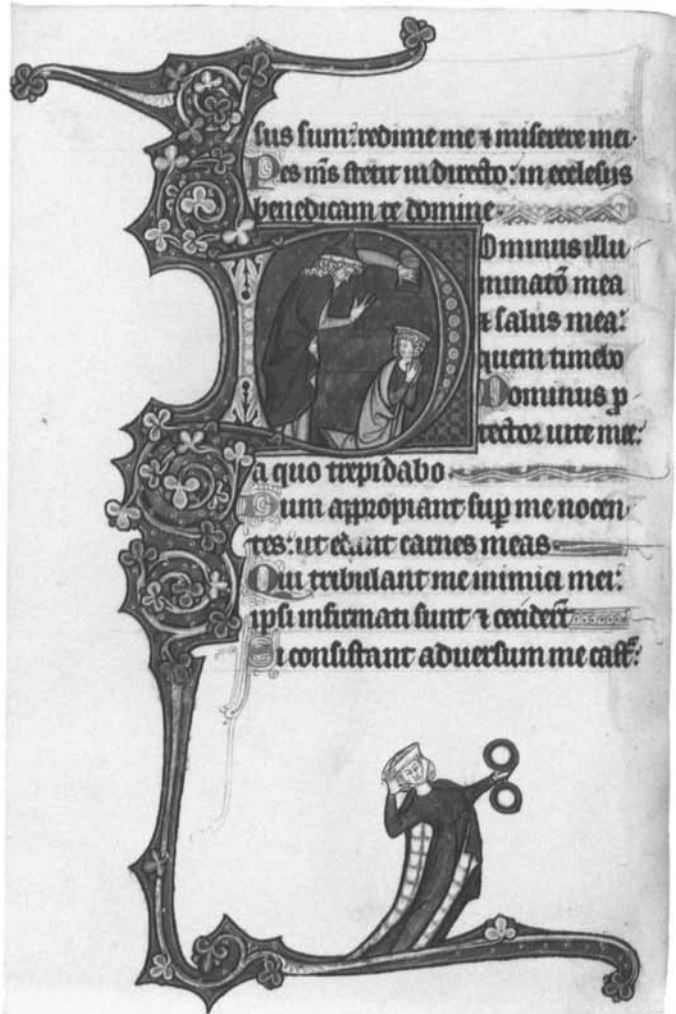 sus sum: redime me ⁊ miserere mei.
Pes m̅s stetit in directo: in ecclesiis
benedicam te domine.
Dominus illu
minatō mea
⁊ salus mea:
quem timebo
Dominus p
tector uite mee:
a quo trepidabo
Dum appropiant sup me nocen
tes: ut edant carnes meas
Qui tribulant me inimici mei:
ipsi infirmati sunt ⁊ cecider̅t
Si consistant aduersum me castͣ: